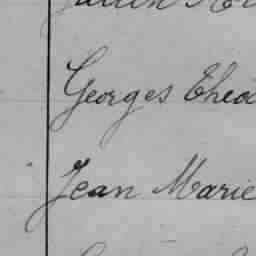 Georges Theo
Jean Marie